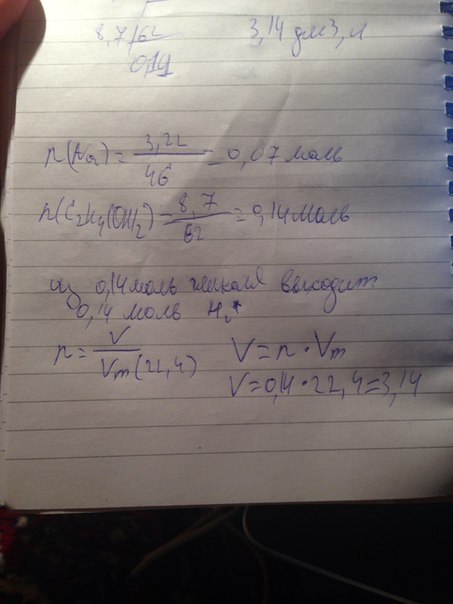 8,7/62 3,14 дм3, л
0,14
n(Na) = 3,22/46 = 0,07 моль
n(C2H4(OH)2) = 8,7/62 = 0,14 моль
из 0,14 моль гликоля выходит
0,14 моль H2
n = V/Vm(22,4) V = n · Vm
V = 0,14 · 22,4 = 3,14